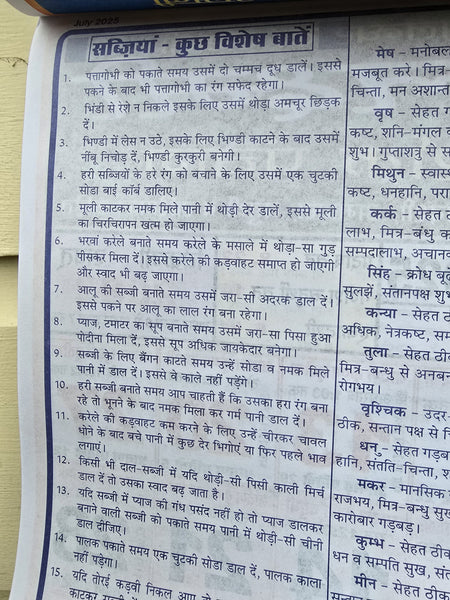 July 2025
सब्ज़ियां - कुछ विशेष बातें
1. पत्तागोभी को पकाते समय उसमें दो चम्मच दूध डालें। इससे
पकने के बाद भी पत्तागोभी का रंग सफेद रहेगा।
2. भिंडी से रेशे न निकले इसके लिए उसमें थोड़ा अमचूर छिड़क
दें।
3. भिण्डी में लेस न उठे, इसके लिए भिण्डी काटने के बाद उसमें
नींबू निचोड़ दें, भिण्डी कुरकुरी बनेगी।
4. हरी सब्जियों के हरे रंग को बचाने के लिए उसमें एक चुटकी
सोडा बाई कॉर्ब डालिए।
5. मूली काटकर नमक मिले पानी में थोड़ी देर डालें, इससे मूली
का चिरचिरापन खत्म हो जाएगा।
6. भरवां करेले बनाते समय करेले के मसाले में थोड़ा-सा गुड़
पीसकर मिला दें। इससे करेले की कड़वाहट समाप्त हो जाएगी
और स्वाद भी बढ़ जाएगा।
7. आलू की सब्जी बनाते समय उसमें जरा-सी अदरक डाल दें।
इससे पकने पर आलू का लाल रंग बना रहेगा।
8. प्याज, टमाटर का सूप बनाते समय उसमें जरा-सा पिसा हुआ
पोदीना मिला दें, इससे सूप अधिक जायकेदार बनेगा।
9. सब्जी के लिए बैंगन काटते समय उन्हें सोडा व नमक मिले
पानी में डाल दें। इससे वे काले नहीं पड़ेंगे।
10. हरी सब्जी बनाते समय आप चाहते हैं कि उसका हरा रंग बना
रहे तो भूनने के बाद नमक मिला कर गर्म पानी डाल दें।
11. करेले की कड़वाहट कम करने के लिए उन्हें चीरकर चावल
धोने के बाद बचे पानी में कुछ देर भिगोएं या फिर पहले भाव
लगाएं।
12. किसी भी दाल-सब्जी में यदि थोड़ी-सी पिसी काली मिर्च
डाल दें तो उसका स्वाद बढ़ जाता है।
13. यदि सब्जी में प्याज की गंध पसंद नहीं हो तो प्याज डालकर
बनाने वाली सब्जी को पकाते समय पानी में थोड़ी-सी चीनी
डाल दीजिए।
14. पालक पकाते समय एक चुटकी सोडा डाल दें, पालक काला
नहीं पड़ेगा।
15. यदि तोरई कड़वी निकल आए तो
मेष - मनोबल
मजबूत करें। मित्र-
चिन्ता, मन अशान्त
वृष - सेहत
कष्ट, शनि-मंगल
शुभ। गुप्तशत्रु से
मिथुन - स्वास्
कष्ट, धनहानि,
कर्क - सेहत
लाभ, मित्र-बंधु
सम्पदालाभ, अचानक
सिंह - क्रोध
सुलझें, संतानपक्ष
कन्या - सेहत
अधिक, नेत्रकष्ट,
तुला - सेहत
मित्र-बन्धु से अनबन
रोगभय।
वृश्चिक - उदर-
ठीक, सन्तान पक्ष से
धनु - सेहत गड़
हानि, संतति-चिन्ता,
मकर - मानसिक
राजभय, मित्र-बन्धु
कारोबार गड़बड़।
कुम्भ - सेहत
धन व सम्पति सुख,
मीन - सेहत